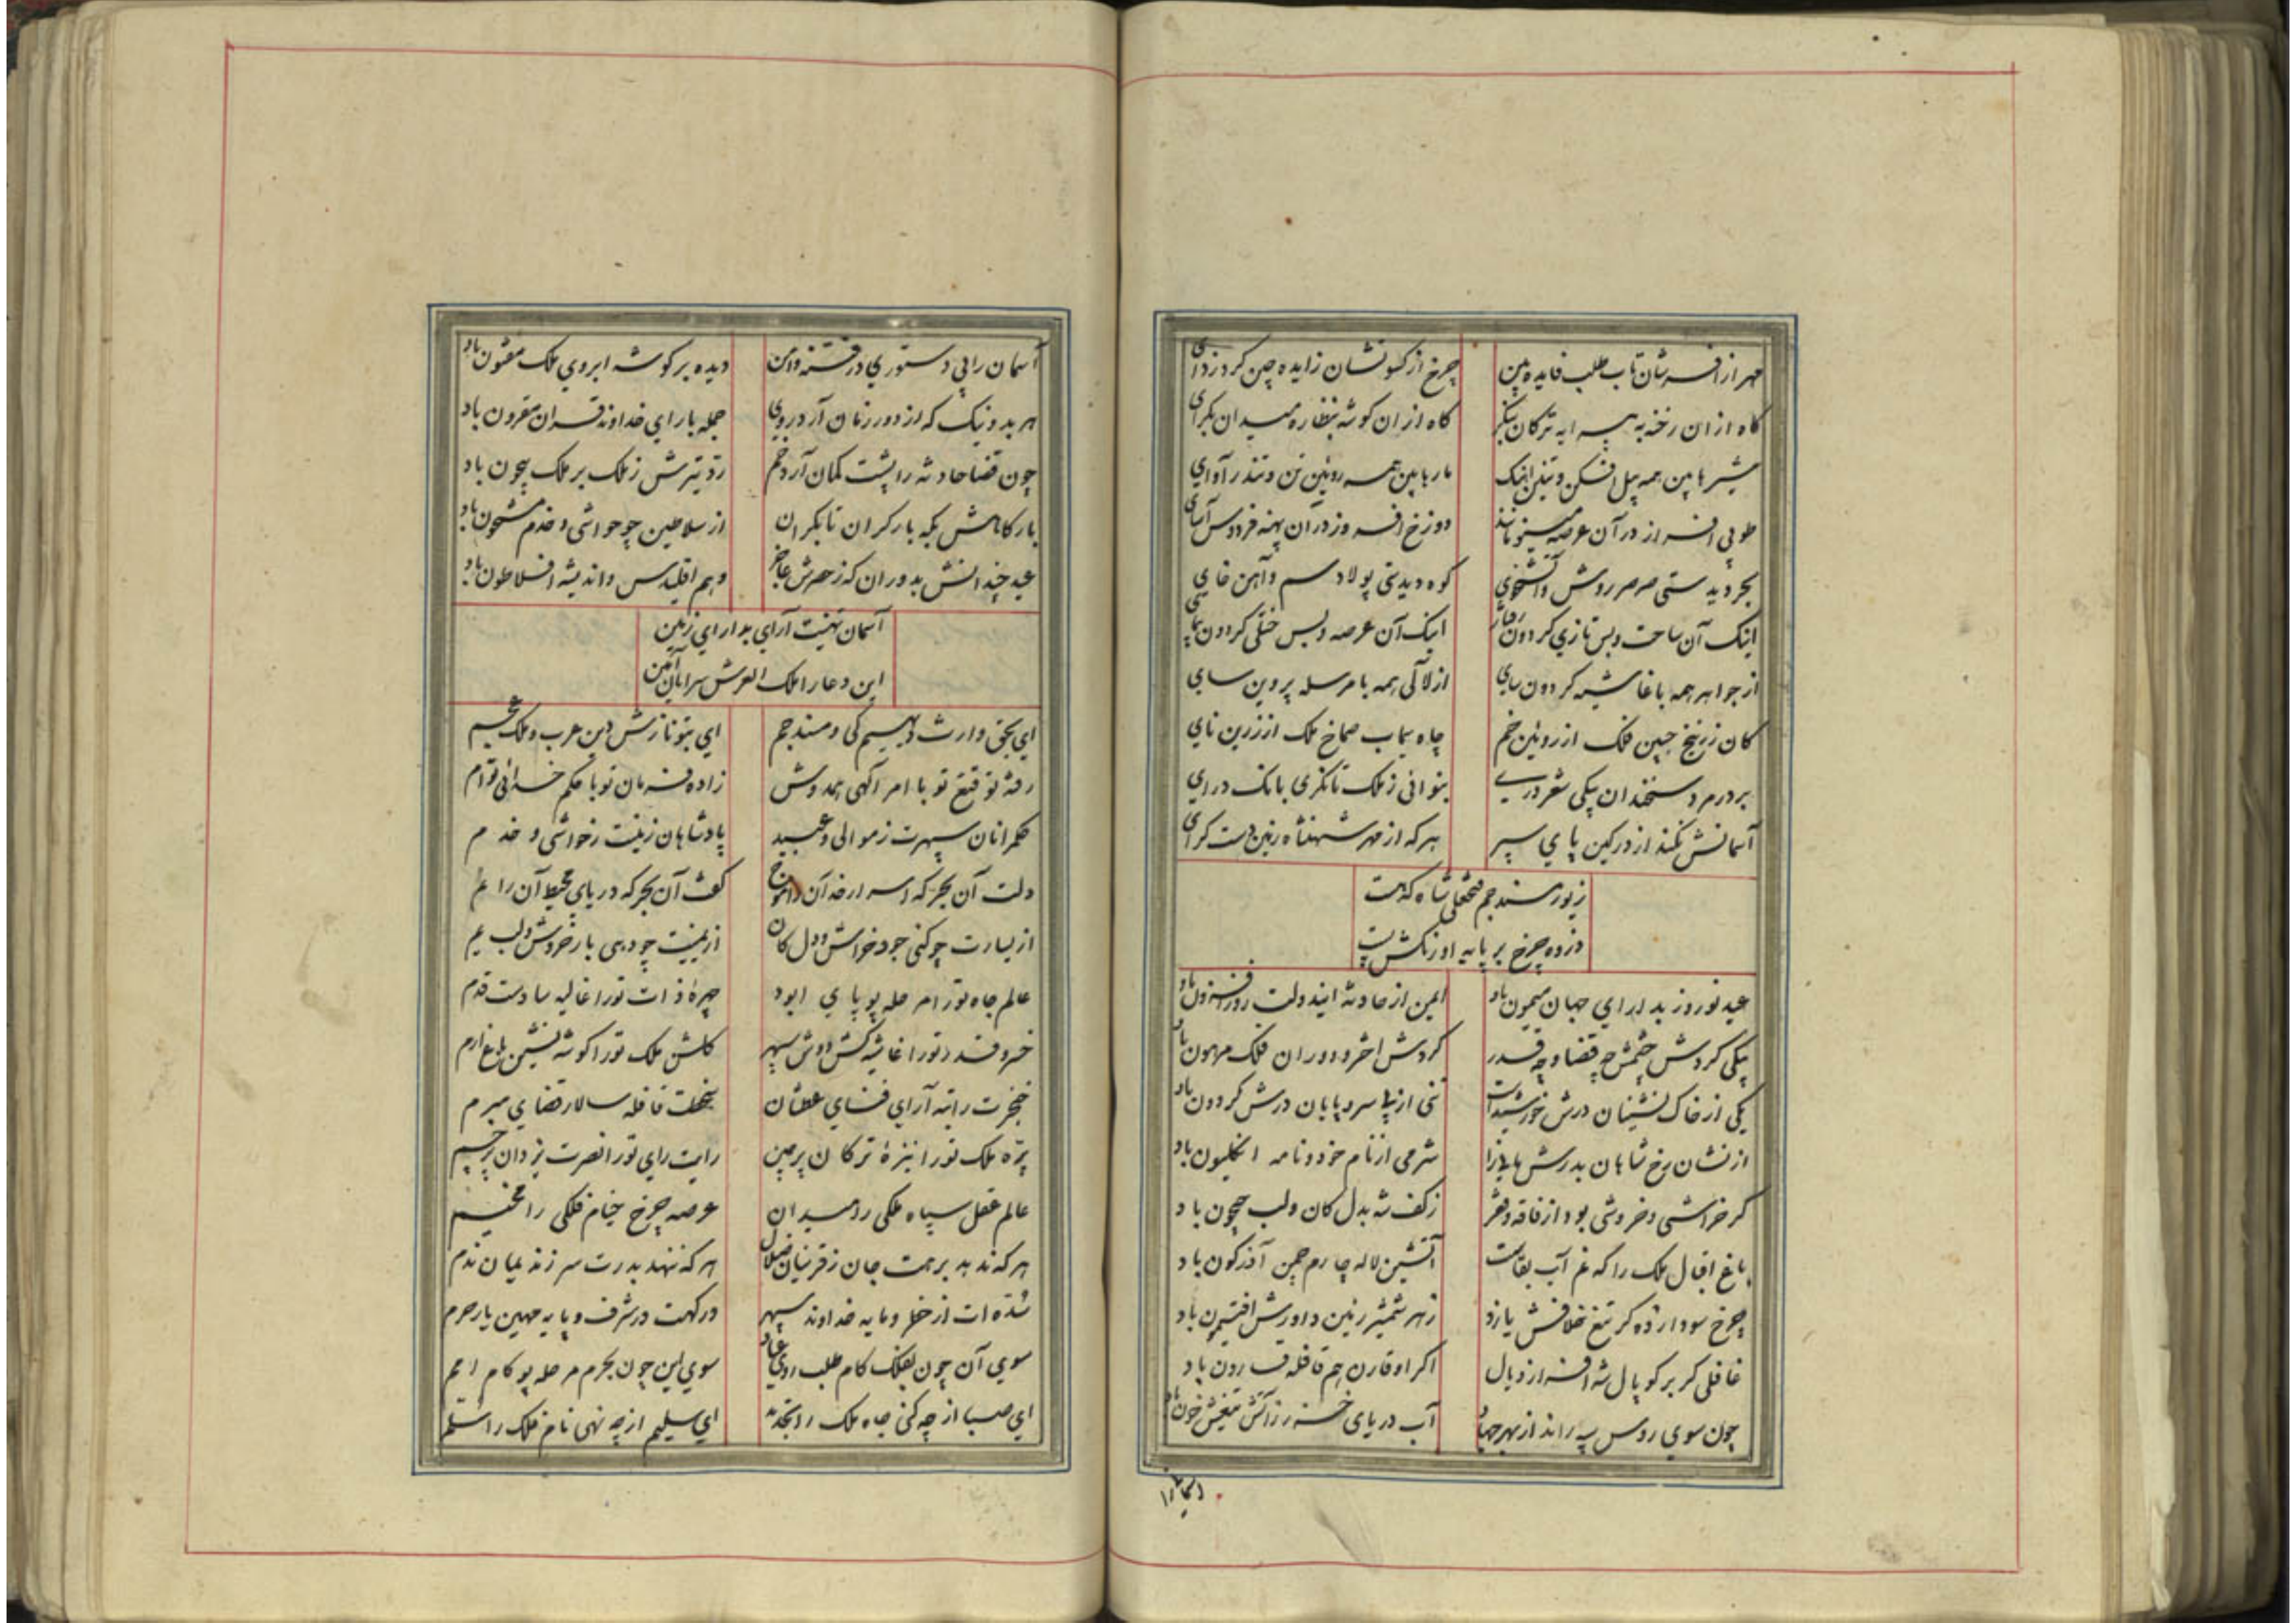 مهر از افسرشان تاب طلب فایده بین چرخ از کسوتشان زایده چین کرد زدای
گاه از ان رخنه به پیرایه ترکان بنگر گاه ازان گوشه بنظاره میدان بگرای
شیرها بین همه پیل افکن و تنین اینک مارها بین همه روئین تن و تندر آوای
طوبی افراز در آن عرصه مینو مانند دوزخ افروز در آن پهنه فردوس آسای
بحر دیدستی صرصر روش و آتشخوی کوه دیدستی پولاد سم و آهن خای
اینک آن ساحت و بس تازی گردون رفتار اینک آن عرصه و بس ختلی گردون پیمای
از جواهر همه با غاشیه گردون سای از لآلی همه با مرسله پروین سای
کان زرنیخ جبین فلک از روئین خم چاه سیماب صماخ ملک از زرین نای
بر در مرد سخندان یکی شعر درسے بنوائی ز ملک تانگری بانک درای
آسمانش نکند از در کین پای سپر هر که از مهر شهنشاه زمین دست گرای
زیور مسند جم فتحعلی شاه که هست
دزوه چرخ بر پایه اورنگش پست
عید نوروز بدارای جهان میمون باد ایمن از حادثه ایندولت روزافزون باد
یکی گردش چشمش چه قضا و چه قدر گردش اختر و دوران فلک مرهون باد
یکی از خاک نشینان درش خورشید است تنی از بی سر و پایان درش گردون باد
از نشان رخ شاهان بدرش شرمی از نام خود و نامه انگلیون باد
گر خراشی و خروشی بود از فاقه و فقر ز کف شه بدل کان و لب جیحون باد
باغ اقبال ملک را که غم آب بقاست آتشین لاله چارم چمن آذرگون باد
چرخ سودازده گر تیغ خلافش یازد زهر شمشیر زمین داورش افتیمون باد
غافلی گر بر کوپال شه افرازد یال اگر او قارن هم قافله قارون باد
چون سوی روس سپه راند از بهر جهاد آب دریای خزر ز آتش تیغش خون باد
آسمان را
آسمان را بی دستوری در فتنه و امن دیده بر گوشه ابروی ملک مفتون باد
هر بد و نیک که از دور زمان آرد روی جمله با رای خداوند قران مقرون باد
چون قضا حادثه را پشت کمان آرد خم رد تیرش ز ملک بر ملک بیچون باد
بارگاهش بگه بار کران تا بکران از سلاطین چو حواشی و خدم مشحون باد
عید چندانش بدوران که ز حصرش عاجز وهم اقلیدس و اندیشه افلاطون باد
آسمان تهنیت آرای بدارای زمین
این دعا را ملک العرش سرایان آمین
ای بحق وارث دیهیم کی و مسند جم ای بتو نازش دین عرب و ملک عجم
رفته توقیع تو با امر آلهی همدوش زاده فرمان تو با حکم خدائی توام
حکمرانان سپهرت ز موالی و عبید پادشاهان زمینت ز حواشی و خدم
دلت آن بحر که اسرار خد آن را موج کفت آن بحر که دریای محیط آن را نم
از یسارت چو کنی جود خراش و دل کان از یمینت چو دهی بار خروش و لب یم
عالم جاه تو را مرحله پو پای ابود چهره ذات تو را غالیه سا دست قدم
خسرو قدر تو را غاشیه کش دوش سپهر گلشن ملک تو را گوشه نشین باغ ارم
خنجرت راتبه آرای فنای عطشان قافله سالار قضای مبرم
پره ملک تو را نیزه ترکان پرچین رایت رای تو را نصرت یزدان پرچم
عالم عقل سپاه ملکی را میدان عرصه چرخ خیام فلکی را مخیم
هر که ندهد برهت جان ز قرینان ضلال هر که ننهد بدرت سر ز ندیمان ندم
سده ات از خطر و مایه خداوند سپهر درگهت در شرف و پایه مهین یار حرم
سوی آن چون بفلک کام طلب روی عباد سوی این چون بحرم مرحله پو گام امم
ای صبا از چه کنی جاه ملک را تجدید ای سلیم از چه نهی نام فلک را سلم